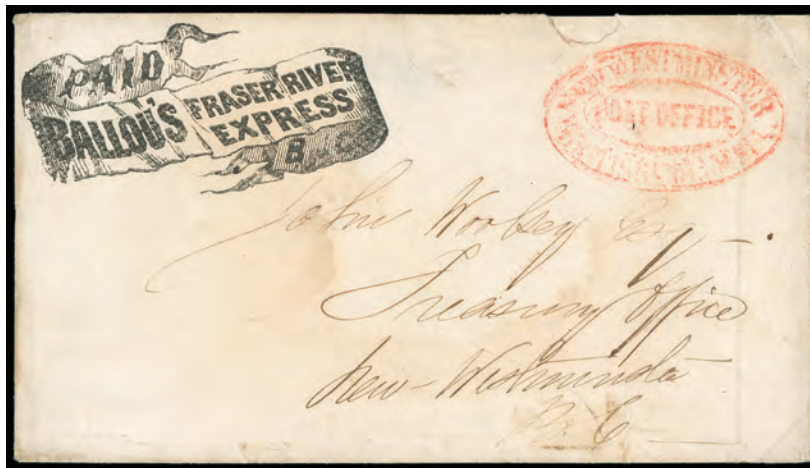 PAID
BALLOU'S FRASER RIVER EXPRESS
B
NEW WESTMINSTER
POST OFFICE
John Woolsey Esq
Treasury Office
New-Westminster
B.C